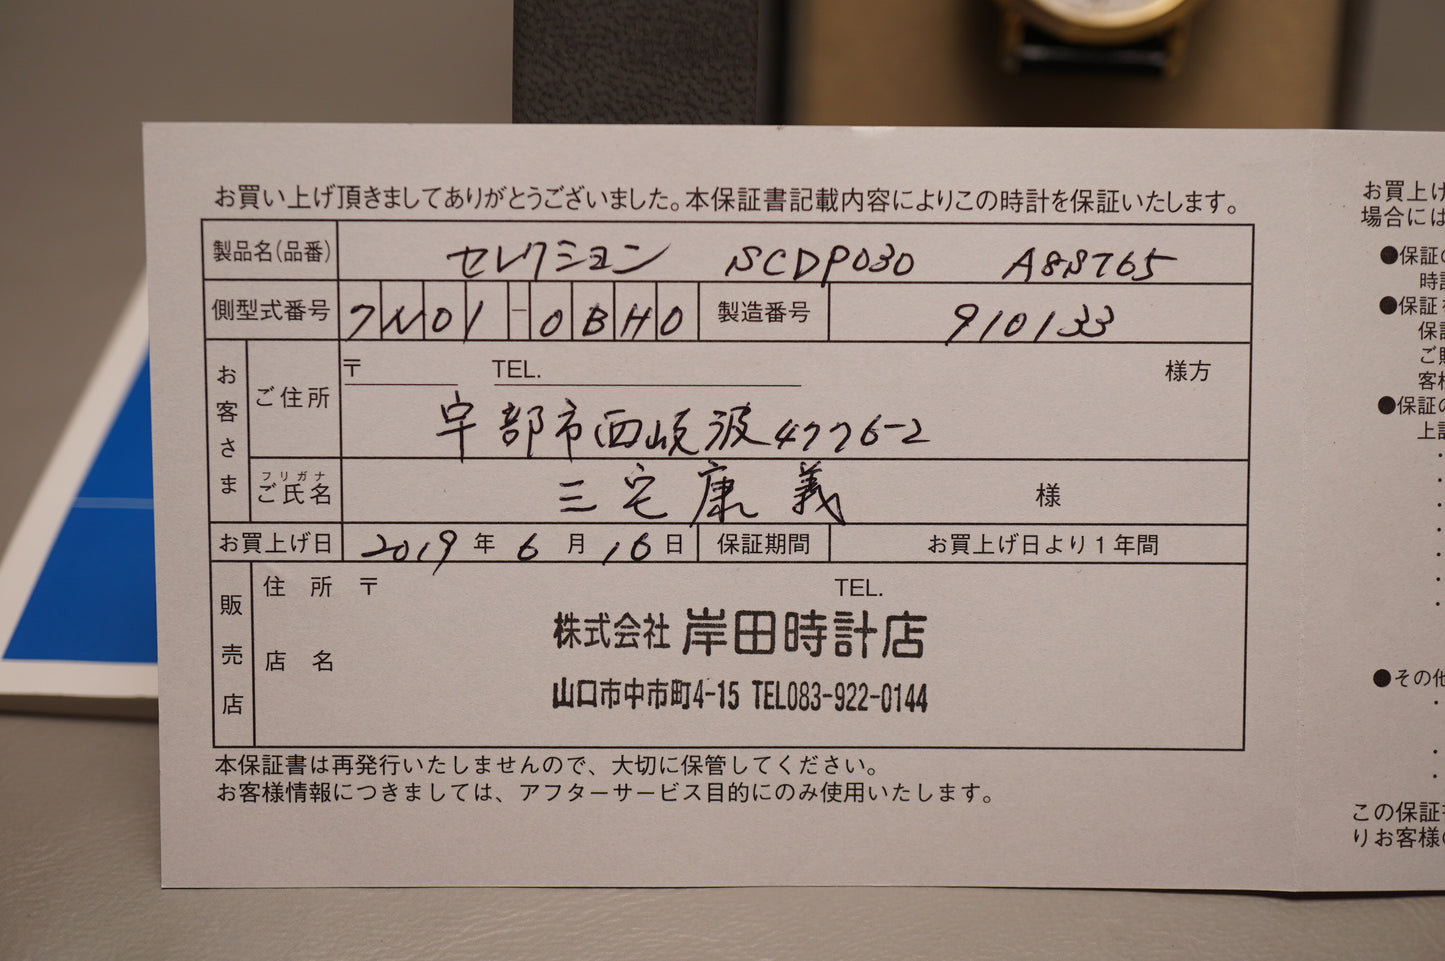 お買い上げ頂きましてありがとうございました。本保証書記載内容によりこの時計を保証いたします。
製品名(品番) セレクション SCDP030 A88765
側型式番号 7N01-0BH0 製造番号 910133
お客さま
ご住所 〒 TEL. 様方
宇部市西岐波4776-2
フリガナ
ご氏名 三宅康義 様
お買上げ日 2019年6月16日 保証期間 お買上げ日より1年間
販売店
住所 〒 TEL.
株式会社 岸田時計店
店名
山口市中市町4-15 TEL083-922-0144
本保証書は再発行いたしませんので、大切に保管してください。
お客様情報につきましては、アフターサービス目的にのみ使用いたします。
お買上げ
場合には
●保証の
時計
●保証
保証
客様
●保証の
●その他
この保証書
りお客様の